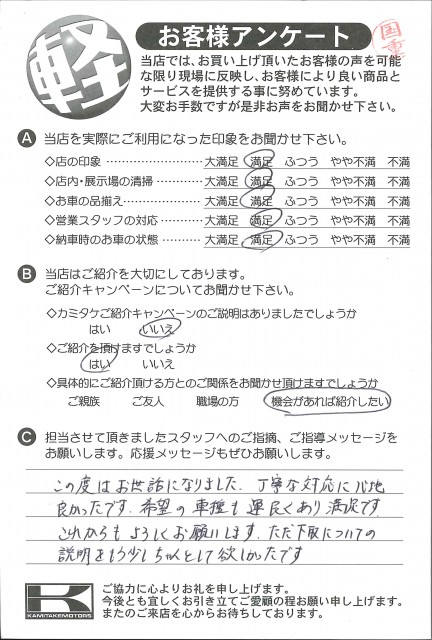 軽
お客様アンケート
当店では、お買い上げ頂いたお客様の声を可能
な限り現場に反映し、お客様により良い商品と
サービスを提供する事に努めています。
大変お手数ですが是非お声をお聞かせ下さい。
A 当店を実際にご利用になった印象をお聞かせ下さい。
◇店の印象 ……………………… 大満足 満足 ふつう やや不満 不満
◇店内・展示場の清掃 ………… 大満足 満足 ふつう やや不満 不満
◇お車の品揃え ………………… 大満足 満足 ふつう やや不満 不満
◇営業スタッフの対応 ………… 大満足 満足 ふつう やや不満 不満
◇納車時のお車の状態 ………… 大満足 満足 ふつう やや不満 不満
B 当店はご紹介を大切にしております。
ご紹介キャンペーンについてお聞かせ下さい。
◇カミタケご紹介キャンペーンのご説明はありましたでしょうか
はい いいえ
◇ご紹介を頂けますでしょうか
はい いいえ
◇具体的にご紹介頂ける方とのご関係をお聞かせ頂けますでしょうか
ご親族 ご友人 職場の方 機会があれば紹介したい
C 担当させて頂きましたスタッフへのご指摘、ご指導メッセージを
お願いします。応援メッセージもぜひお願いします。
この度はお世話になりました。丁寧な対応に心地
良かったです。希望の車種も運良くあり満足です
これからもよろしくお願いします。ただ下取についての
説明をもう少しちゃんとして欲しかったです
K
KAMITAKEMOTORS
ご協力に心よりお礼を申し上げます。
今後とも宜しくお引き立てご愛顧の程お願い申し上げます。
またのご来店を心からお待ちしております。